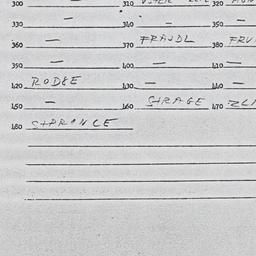 300 — 310 320
330 — 340 — 350 —
360 — 370 FRAJDL 380 FRV
390 — 400 — 410 —
420 RODGE 430 — 440 —
450 — 460 SIRAGE 470 ZLI
480 STPRONCE